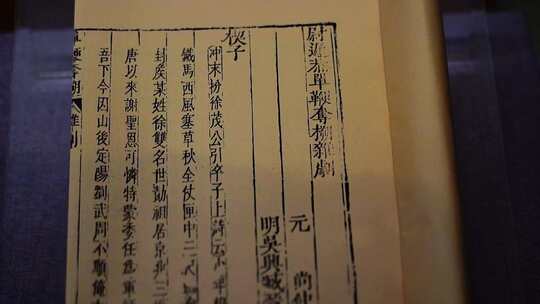 尉遲恭單鞭奪槊雜劇
元　尚仲
明吳興臧
楔子
冲末扮徐茂公引卒子上詩云少年
鐵馬西風塞草秋全仗匣中三尺
封侯某姓徐雙名世勣祖居京兆三
唐以來謝聖恩可憐特蒙委任為軍
吾下今因山後定陽劉武周不順俺